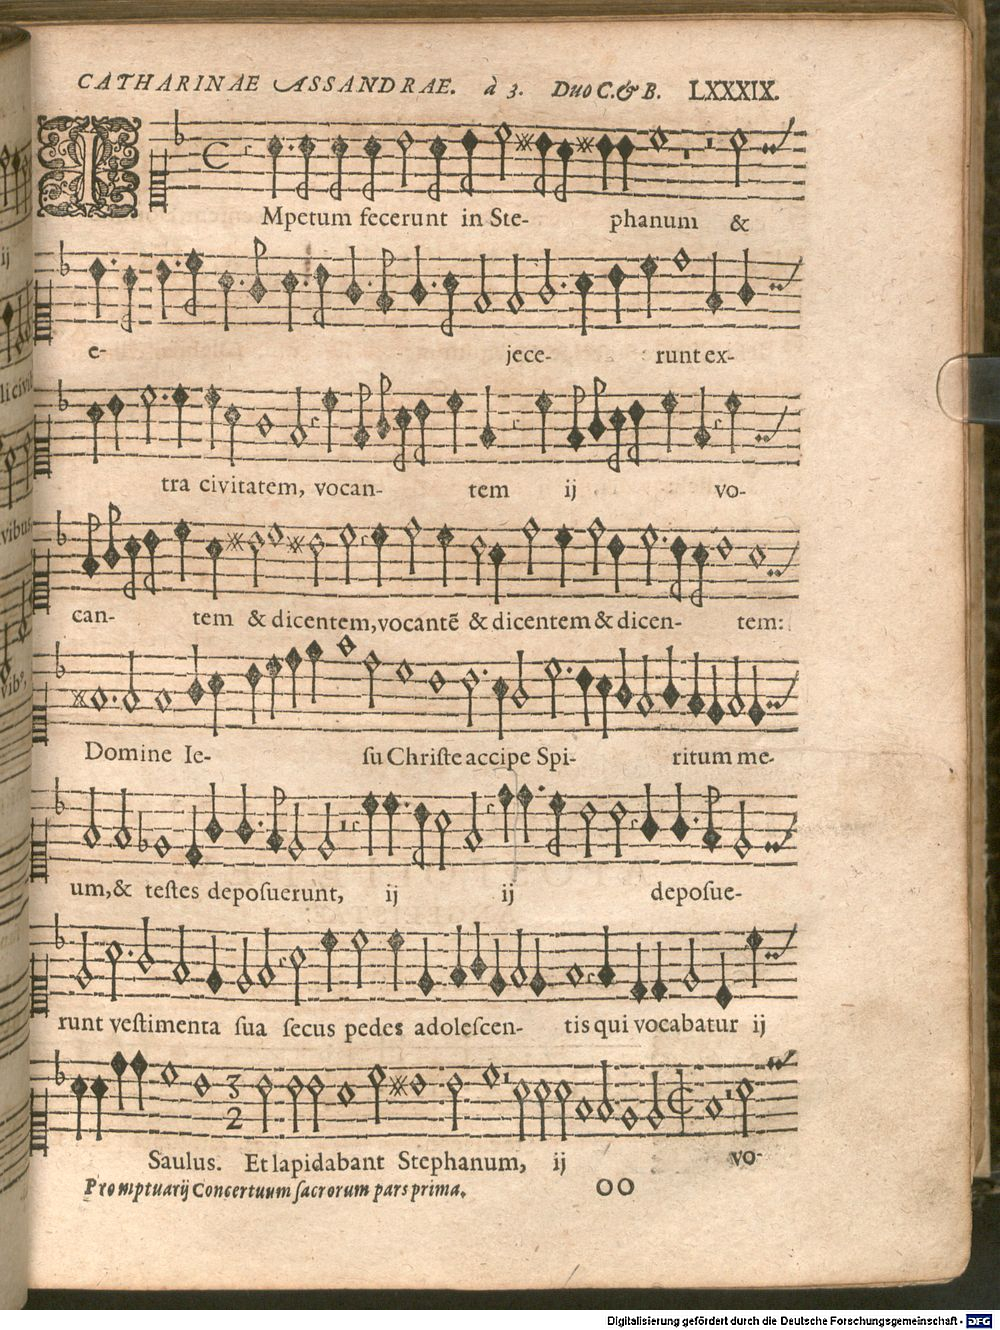 CATHARINAE ASSANDRAE. à 3. Duo C. & B. LXXXIX.
IMpetum fecerunt in Ste- phanum &
e- jece- runt ex-
tra civitatem, vocan- tem ij vo-
can- tem & dicentem, vocantē & dicentem & dicen- tem:
Domine Ie- ſu Chriſte accipe Spi- ritum me-
um, & teſtes depoſuerunt, ij ij depoſue-
runt veſtimenta ſua ſecus pedes adoleſcen- tis qui vocabatur ij
3
2
Saulus. Et lapidabant Stephanum, ij vo-
Promptuarij Concertuum ſacrorum pars prima. OO
ij
li civit
vibus
vibꝰ,
Digitalisierung gefördert durch die Deutsche Forschungsgemeinschaft - DFG